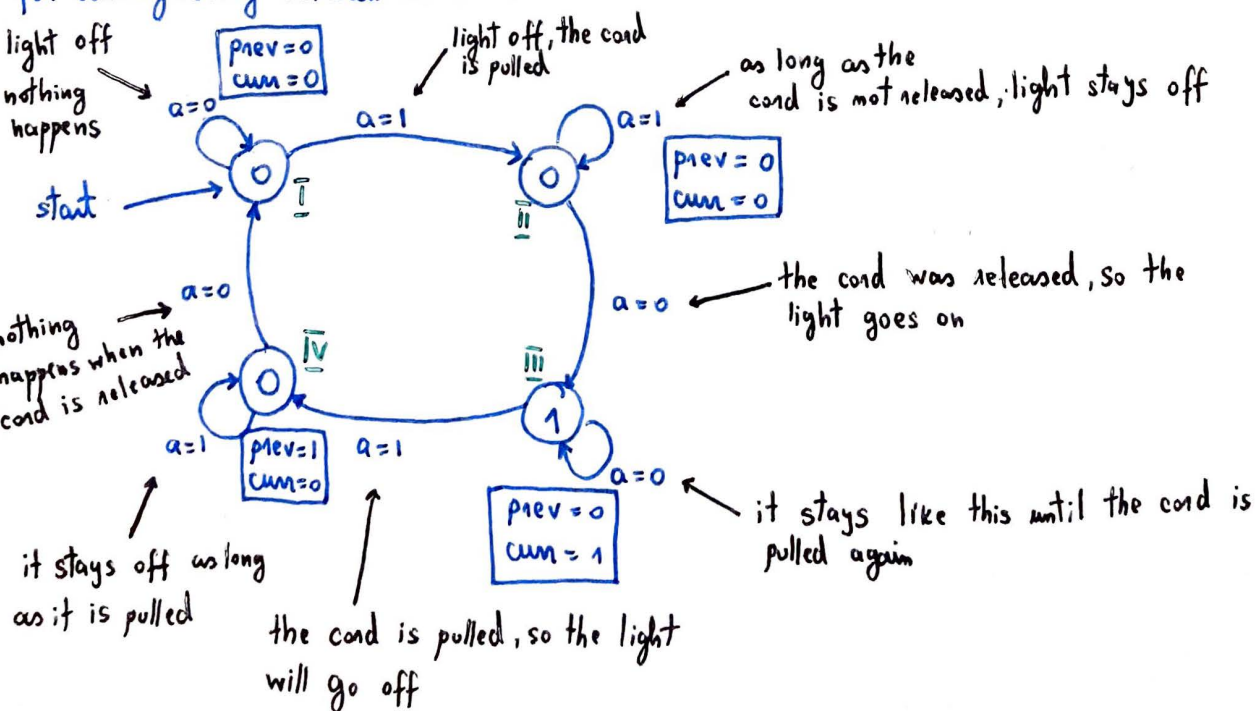 light off
nothing
happens
prev=0
curr=0
light off, the cord
is pulled
as long as the
cord is not released, light stays off
a=0
a=1
a=1
0
0
prev = 0
curr = 0
start
I
II
a=0
a=0
the cord was released, so the
light goes on
nothing
happens when the
cord is released
IV
III
0
1
a=1
prev=1
curr=0
a=1
a=0
prev = 0
curr = 1
it stays like this until the cord is
pulled again
it stays off as long
as it is pulled
the cord is pulled, so the light
will go off